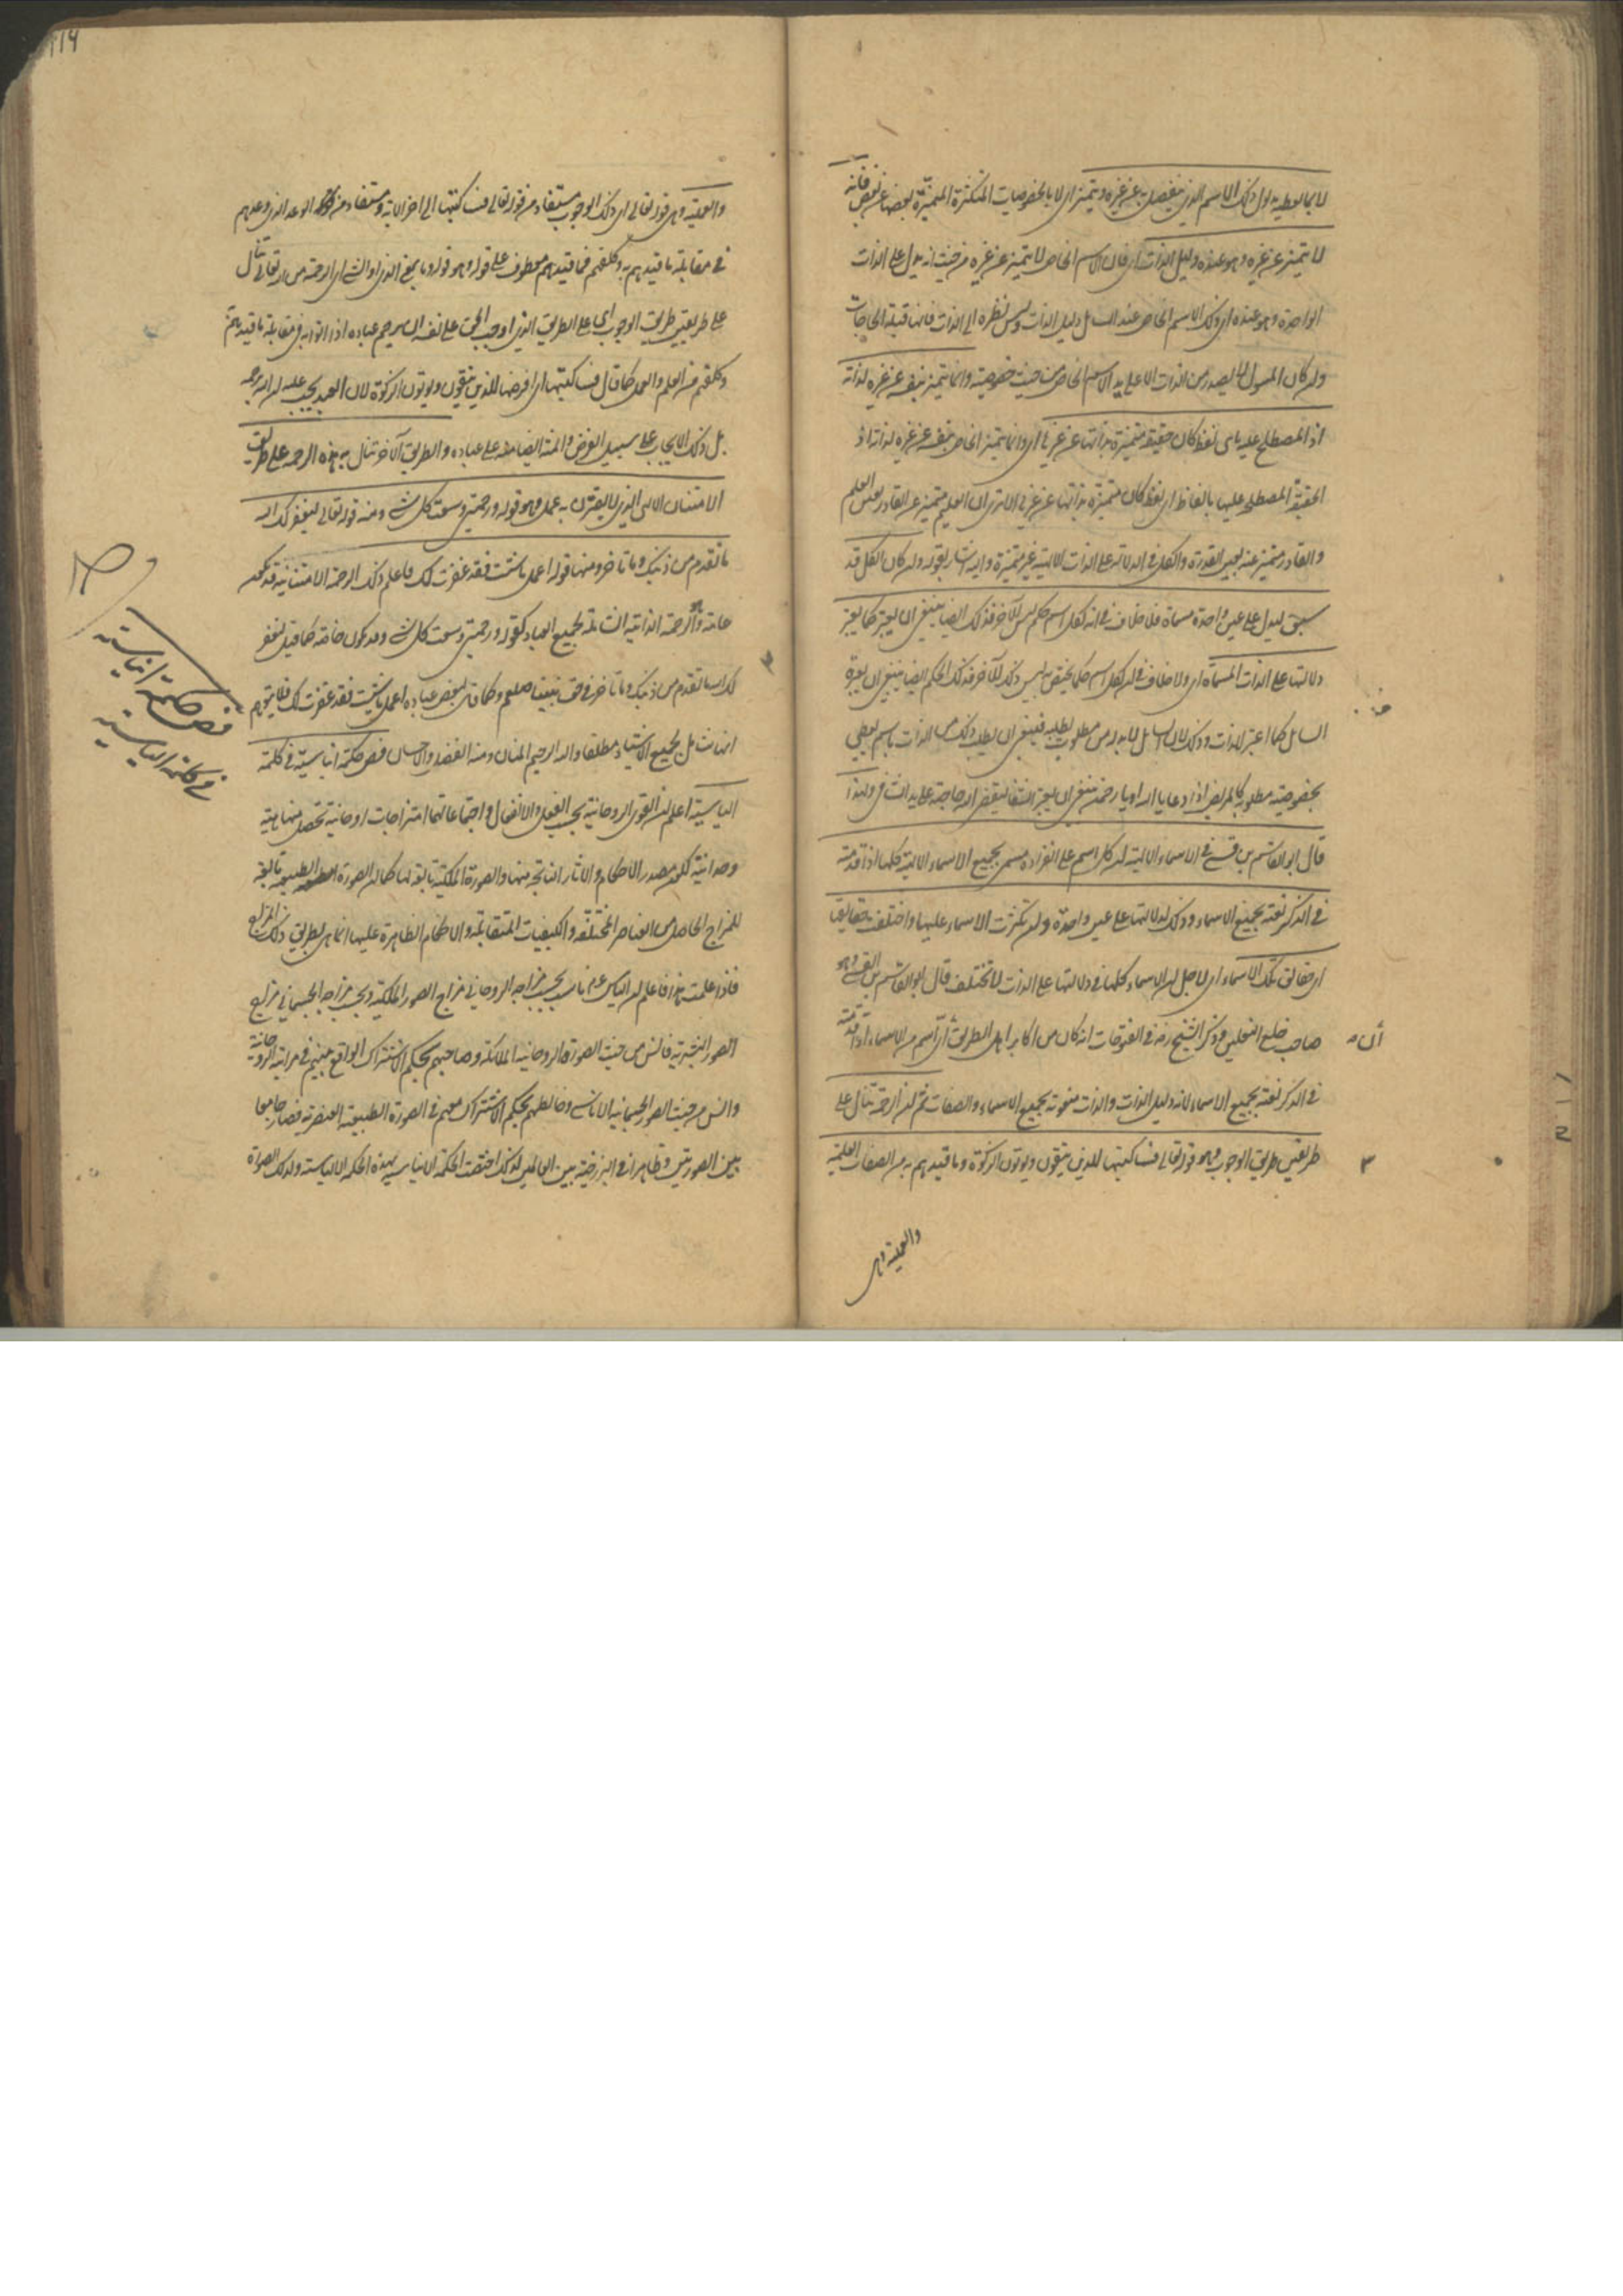 لا بما يعطيه مدلول ذلك الاسم الذي ينفصل به عن غيره ويتميز اى لا بالخصوصيات المتكثرة المتميزة بعضها عن بعض فانه
لا يتميز عن غيره وهو عنده دليل الذات اى فان الاسم الخاص لا يتميز عن غيره من حيث انه يدل على الذات
الواحدة وهو عنده اى ذلك الاسم الخاص عند السايل دليل الذات وليس نظره الى الذات فانها قبلة الحاجات
وان كان المسول لا يصدر من الذات الا على يد الاسم الخاص من حيث خصوصيته وانما يتميز بنفسه عن غيره لذاته
اذ المصطلح عليه باى لفظ كان حقيقة متميزة بذاتها عن غيرها اى وانما يتميز الخاص بنفسه عن غيره لذاته اذ
الحقيقة المصطلح عليها بالفاظ اى لفظ كان متميزة بذاتها عن غيرها الا ترى ان العليم متميز عن القادر بعين العلم
والقادر متميز عنه بعين القدرة والكل في الدلالة على الذات الالهية غير متميزة واليه اشار بقوله وان كان الكل قد
سيق ليدل على عين واحدة مسماة فلا خلاف في انه لكل اسم حكم ليس للآخر فذلك ايضا ينبغى ان يعتبر كما يعتبر
دلالتها على الذات المسماة اى ولا خلاف في ان لكل اسم حكما يختص به ليس ذلك للآخر فذلك الحكم ايضا ينبغى ان يعتبره
السايل كما اعتبر الذات وذلك لان السايل لا بد له من مطلوب يطلبه فينبغى ان يطلب ذلك من الذات باسم يعطى
بخصوصيته مطلوبه كالمريض اذا دعا يا الله او يا رحمن ينبغى ان يعتبر الشفا ليقضى الله حاجته على يد الشافى ولهذا
قال ابو القاسم بن قسى في الاسماء الالهية ان كل اسم على انفراده مسمى بجميع الاسماء الالهية كلها اذا قدمته
في الذكر نعته بجميع الاسماء وذلك لدلالتها على عين واحدة وان تكثرت الاسماء عليها واختلفت حقايقها
اى حقايق تلك الاسماء اى لاجل ان الاسماء كلها في دلالتها على الذات لا تختلف قال ابو القاسم بن القسى وهو
صاحب خلع النعلين وذكر الشيخ رضه في الفتوحات انه كان من اكابر اهل الطريق ان اسم من الاسماء اذا قدمته
في الذكر نعته بجميع الاسماء لانه دليل الذات والذات منعوتة بجميع الاسماء والصفات ثم ان الرحمة تنال على
طريقين طريق الوجوب وهو قوله تعالى فساكتبها للذين يتقون ويوتون الزكوة وما قيدهم به من الصفات العلمية
والعملية وهى
والعملية وهى قوله تعالى اى ذلك الوجوب مستفاد من قوله تعالى فساكتبها الى اخر الاية ومستفاد من الوعد الذى وعدهم
في مقابلة ما قيدهم به وكلفهم فما قيدهم معطوف على قوله وهو قوله وما بمعنى الذى او الشى اى الرحمة من الله تعالى تنال
على طريقين طريق الوجوب اى على الطريق الذى اوجب الحق على نفسه ان يرحم عباده اذا اتوا به في مقابلة ما قيدهم
وكلفهم من العلم والعمل كما قال فساكتبها اى افرضها للذين يتقون ويوتون الزكوة لان العبد يجب عليه ان الله يرحمه
بل ذلك الايجاب على سبيل الفضل والمنة ايضا منه على عباده والطريق الآخر تنال به هذه الرحمة على طريق
الامتنان الالهى الذى لا يقترن به عمل وهو قوله ورحمتى وسعت كل شى ومنه قوله تعالى ليغفر لك الله
ما تقدم من ذنبك وما تاخر ومنها قوله اعمل ما شئت فقد غفرت لك فاعلم ذلك الرحمة الامتنانية قد تكون
عامة وهو الرحمة الذاتية الشاملة لجميع العباد كقوله ورحمتى وسعت كل شى وقد تكون خاصة كما قيل ليغفر
لك الله ما تقدم من ذنبك وما تاخر في حق نبينا صلعم وكما قال لبعض عباده اعمل ما شئت فقد غفرت لك فلا يتوهم
انها شامل لجميع الاشياء مطلقا والله الرحيم المنان ومنه الفضل والاحسان فص حكمة ايناسية في كلمة
الياسية اعلم ان القوى الروحانية بحسب الفعل والانفعال واجتماعاتها امتزاجات روحانية تحصل منها هيئة
وحدانية لتكون مصدر الاحكام والاثار الناتجة منها والصورة الملكية تابعة لها كما ان الصورة الطبيعية تابعة
للمزاج الحاصل من العناصر المختلفة والكيفيات المتقابلة والاحكام الظاهرة عليها انما هى بطريق ذلك المزاج
فاذا علمت هذا فاعلم ان الياس عم ناسب بحسب مزاجه الروحانى مزاج الصور الملكية وبحسب مزاجه الجسمانى مزاج
الصور البشرية فانس من حيث الصورة الروحانية الملائكة وصاحبهم بحكم الاشتراك الواقع بينهم في مراتبه الروحانية
وانس من حيث الصور الجسمانية الاناسى وخالطهم بحكم الاشتراك معهم في الصورة الطبيعية العنصرية فصار جامعا
بين الصورتين وظاهرا في البرزخية بين العالمين لذلك اختصت الحكمة الايناسية بهذه الحكمة الالياسية ولذلك الصورة
فص حكمة ايناسية
في كلمة الياسية